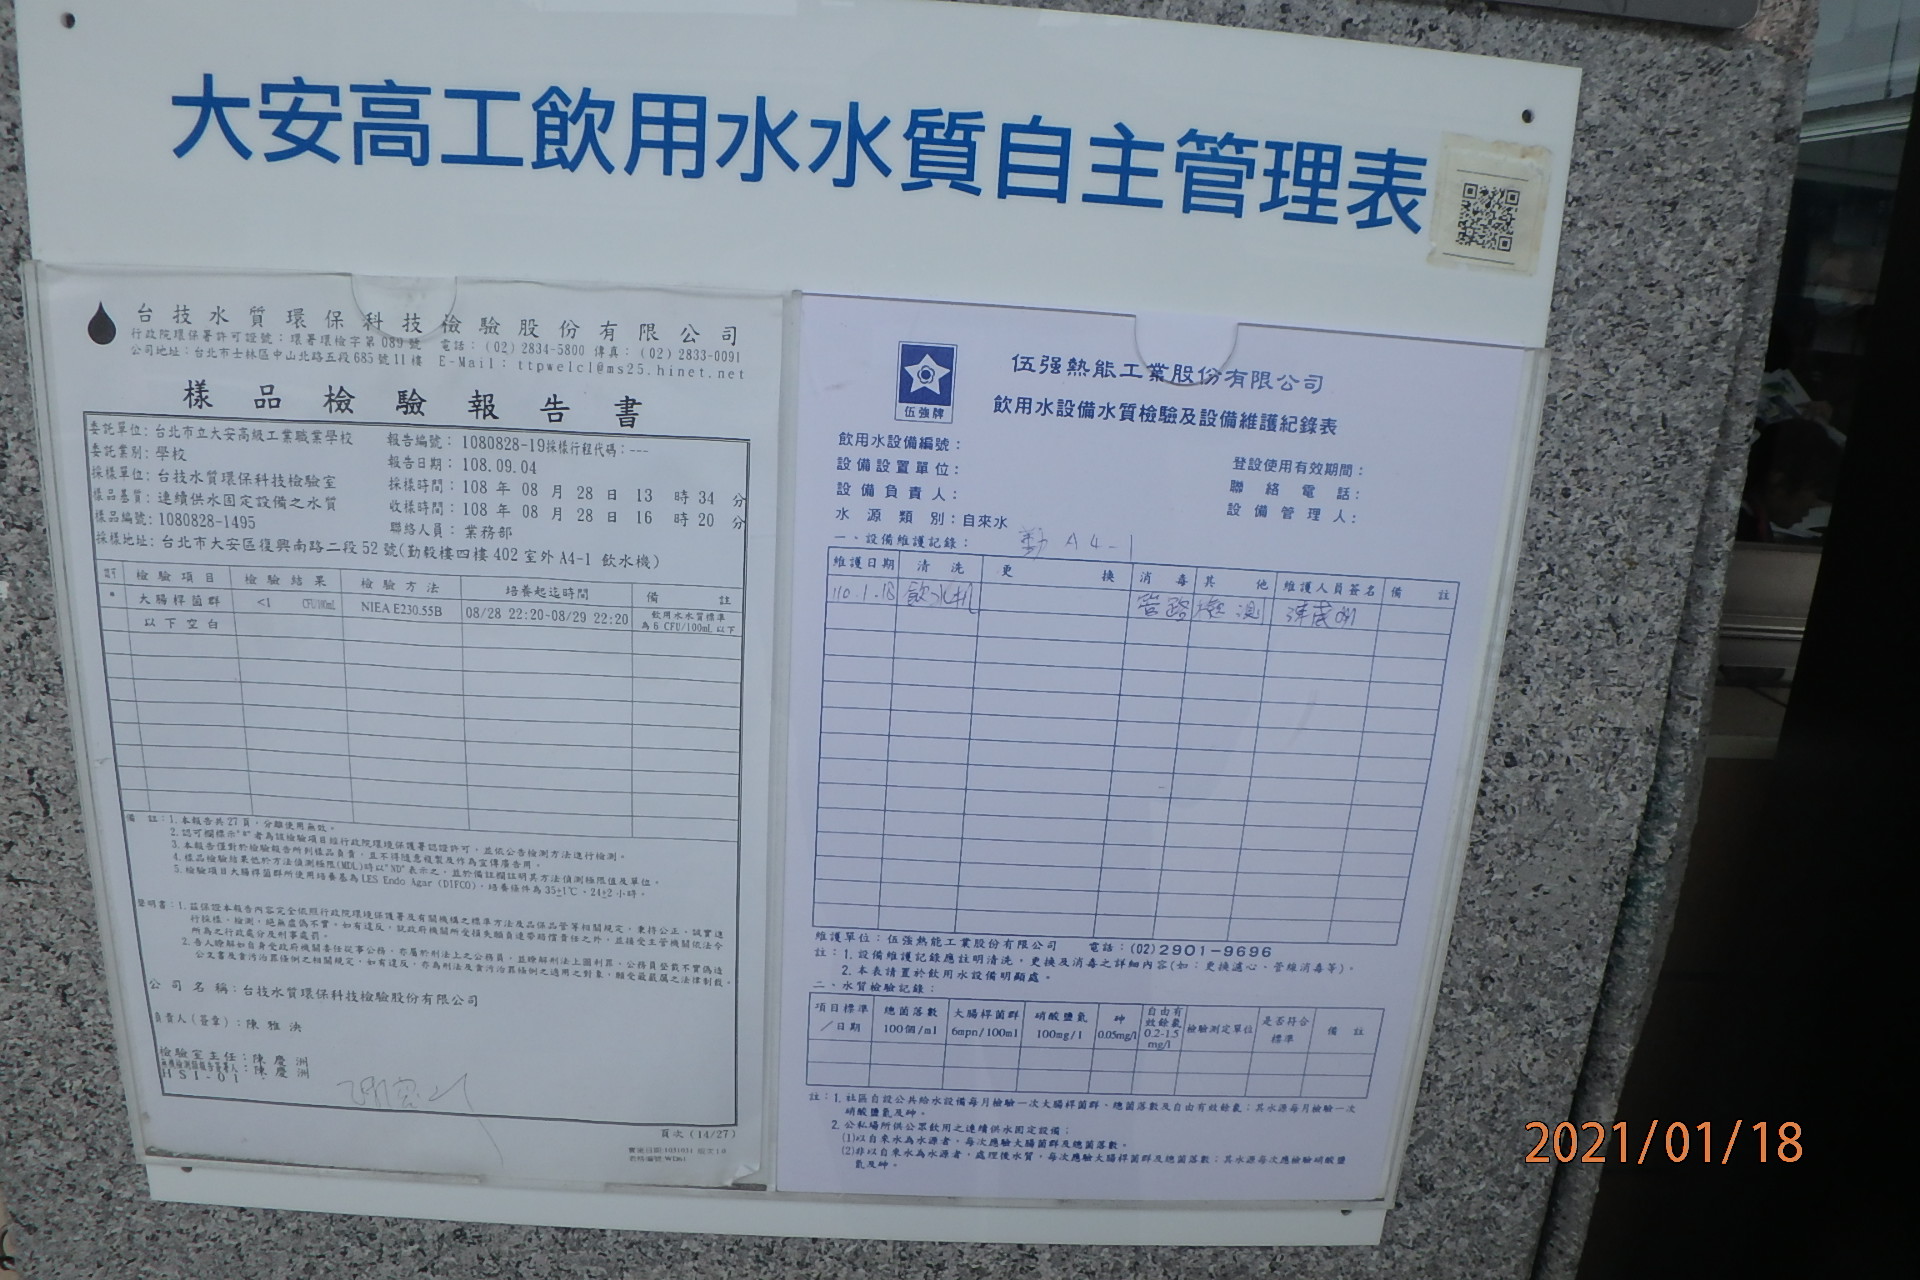 大安高工飲用水水質自主管理表
台技水質環保科技檢驗股份有限公司
行政院環保署許可證號：環署環檢字第089號 電話：(02)2834-5800 傳真：(02)2833-0091
公司地址：台北市士林區中山北路五段685號11樓 E-Mail：ttpwelcl@ms25.hinet.net
樣品檢驗報告書
委託單位：台北市立大安高級工業職業學校
委託業別：學校
採樣單位：台技水質環保科技檢驗室
樣品基質：連續供水固定設備之水質
樣品編號：1080828-1495
報告編號：1080828-19採樣行程代碼：---
報告日期：108.09.04
採樣時間：108 年 08 月 28 日 13 時 34 分
收樣時間：108 年 08 月 28 日 16 時 20 分
聯絡人員：業務部
採樣地址：台北市大安區復興南路二段52號(勤毅樓四樓402室外A4-1 飲水機)
檢驗項目 檢驗結果 檢驗方法 培養起迄時間 備註
* 大腸桿菌群 <1 CFU/100mL NIEA E230.55B 08/28 22:20~08/29 22:20 飲用水水質標準
為6 CFU/100mL以下
以下空白
備 註：1.本報告共27頁，分離使用無效。
2.認可欄標示"*"者為該檢驗項目經行政院環境保護署認證許可，並依公告檢測方法進行檢測。
3.本報告僅對於檢驗報告所列樣品負責，且不得隨意複製及作為宣傳廣告用。
4.樣品檢驗結果低於方法偵測極限(MDL)時以"ND"表示之，並於備註欄註明其方法偵測極限值及單位。
5.檢驗項目大腸桿菌群所使用培養基為LES Endo Agar (DIFCO)，培養條件為35±1℃，24±2小時。
聲明書：1.茲保證本報告內容完全依照行政院環境保護署及有關機構之標準方法及品保品管等相關規定，秉持公正、誠實進
行採樣、檢測，絕無虛偽不實，如有違反，就政府機關所受損失願負連帶賠償責任之外，並接受主管機關依法令
所為之行政處分及刑事處罰。
2.吾人瞭解如自身受政府機關委任從事公務，亦屬於刑法上之公務員，並瞭解刑法上圖利罪、公務員登載不實偽造
公文書及貪污治罪條例之相關規定，如有違反，亦為刑法及貪污治罪條例之適用之對象，願受最嚴厲之法律制裁。
公司名稱：台技水質環保科技檢驗股份有限公司
負責人(簽章)：陳雅泱
檢驗室主任：陳慶洲
無機檢測類報告簽署人：陳慶洲
HSI-01
頁次 (14/27)
伍强熱能工業股份有限公司
伍強牌
飲用水設備水質檢驗及設備維護紀錄表
飲用水設備編號：
設備設置單位： 登設使用有效期間：
設備負責人： 聯絡電話：
水源類別：自來水 設備管理人：
一、設備維護記錄： 勤 A4-1
維護日期 清洗 更換 消毒 其他 維護人員簽名 備註
110.1.18 飲水机 管路 檢測
維護單位：伍强熱能工業股份有限公司 電話：(02)2901-9696
註：1.設備維護記錄應註明清洗、更換及消毒之詳細內容(如：更換濾心、管線消毒等)。
2.本表請置於飲用水設備明顯處。
二、水質檢驗記錄：
項目標準／日期 總菌落數 100個/ml 大腸桿菌群 6mpn/100ml 硝酸鹽氮 100mg/l 砷 0.05mg/l 自由有效餘氯 0.2-1.5 mg/l 檢驗測定單位 是否符合標準 備註
註：1.社區自設公共給水設備每月檢驗一次大腸桿菌群、總菌落數及自由有效餘氯；其水源每月檢驗一次
硝酸鹽氮及砷。
2.公私場所供公眾飲用之連續供水固定設備：
(1)以自來水為水源者，每次應驗大腸菌群及總菌落數。
(2)非以自來水為水源者，處理後水質，每次應驗大腸桿菌群及總菌落數；其水源每次應檢驗硝酸鹽
氮及砷。
2021/01/18